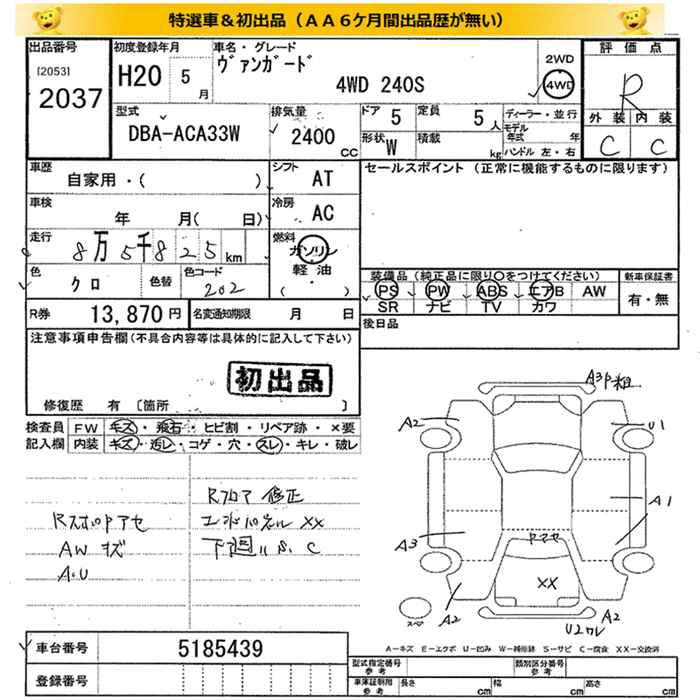 特選車＆初出品（ＡＡ６ケ月間出品歴が無い）
出品番号
[2053]
2037
初度登録年月
H20 5 月
車名・グレード
ヴァンガード
4WD 240S
2WD
4WD
評価点
R
外装 内装
C C
型式
DBA-ACA33W
排気量
2400 CC
ドア 5
定員 5 人
形状 W
積載 kg
ディーラー・並行
モデル年式 年
ハンドル 左・右
車歴
自家用・( )
シフト
AT
セールスポイント（正常に機能するものに限ります）
車検
年 月( 日)
冷房
AC
走行
8万5千825 km
燃料
ガソリン
軽油
( ・ )
色
クロ
色替
色コード
202
装備品（純正品に限り○をつけてください）
PS PW ABS エアB AW
SR ナビ TV カワ
新車保証書
有・無
R券 13,870円
名変通知期限 月 日
後日品
注意事項申告欄(不具合内容等は具体的に記入して下さい)
初出品
修復歴 有 〔箇所 〕
検査員記入欄
FW キズ・飛石・ヒビ割・リペア跡・×要
内装 キズ・汚レ・コゲ・穴・スレ・キレ・破レ
Rフロア 修正
エンドパネル XX
下廻り S、C
AW キズ
A・U
A2
U1
A1
A3
ヤマセ
XX
スペ
A2
A2
A-キズ E-エクボ U-凹み W-補修跡 S-サビ C-腐食 XX-交換済
車台番号
5185439
登録番号
型式指定番号 参考
類別区分番号 参考
車庫証明用 参考
長さ cm
幅 cm
高さ cm